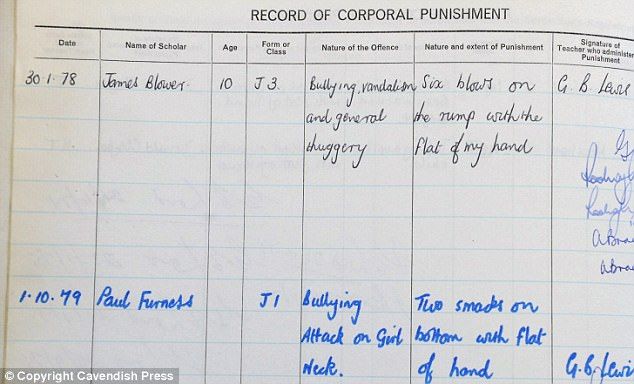 RECORD OF CORPORAL PUNISHMENT
Date Name of Scholar Age Form or Class Nature of the Offence Nature and extent of Punishment Signature of Teacher who administer Punishment
30.1.78 James Blower 10 J3 Bullying, vandalism Six blows on G.B. Lewis
and general the rump with the
thuggery flat of my hand
1.10.79 Paul Furness J1 Bullying Two smacks on
Attack on Girl bottom with flat
Neck. of hand G.B. Lewis
© Copyright Cavendish Press